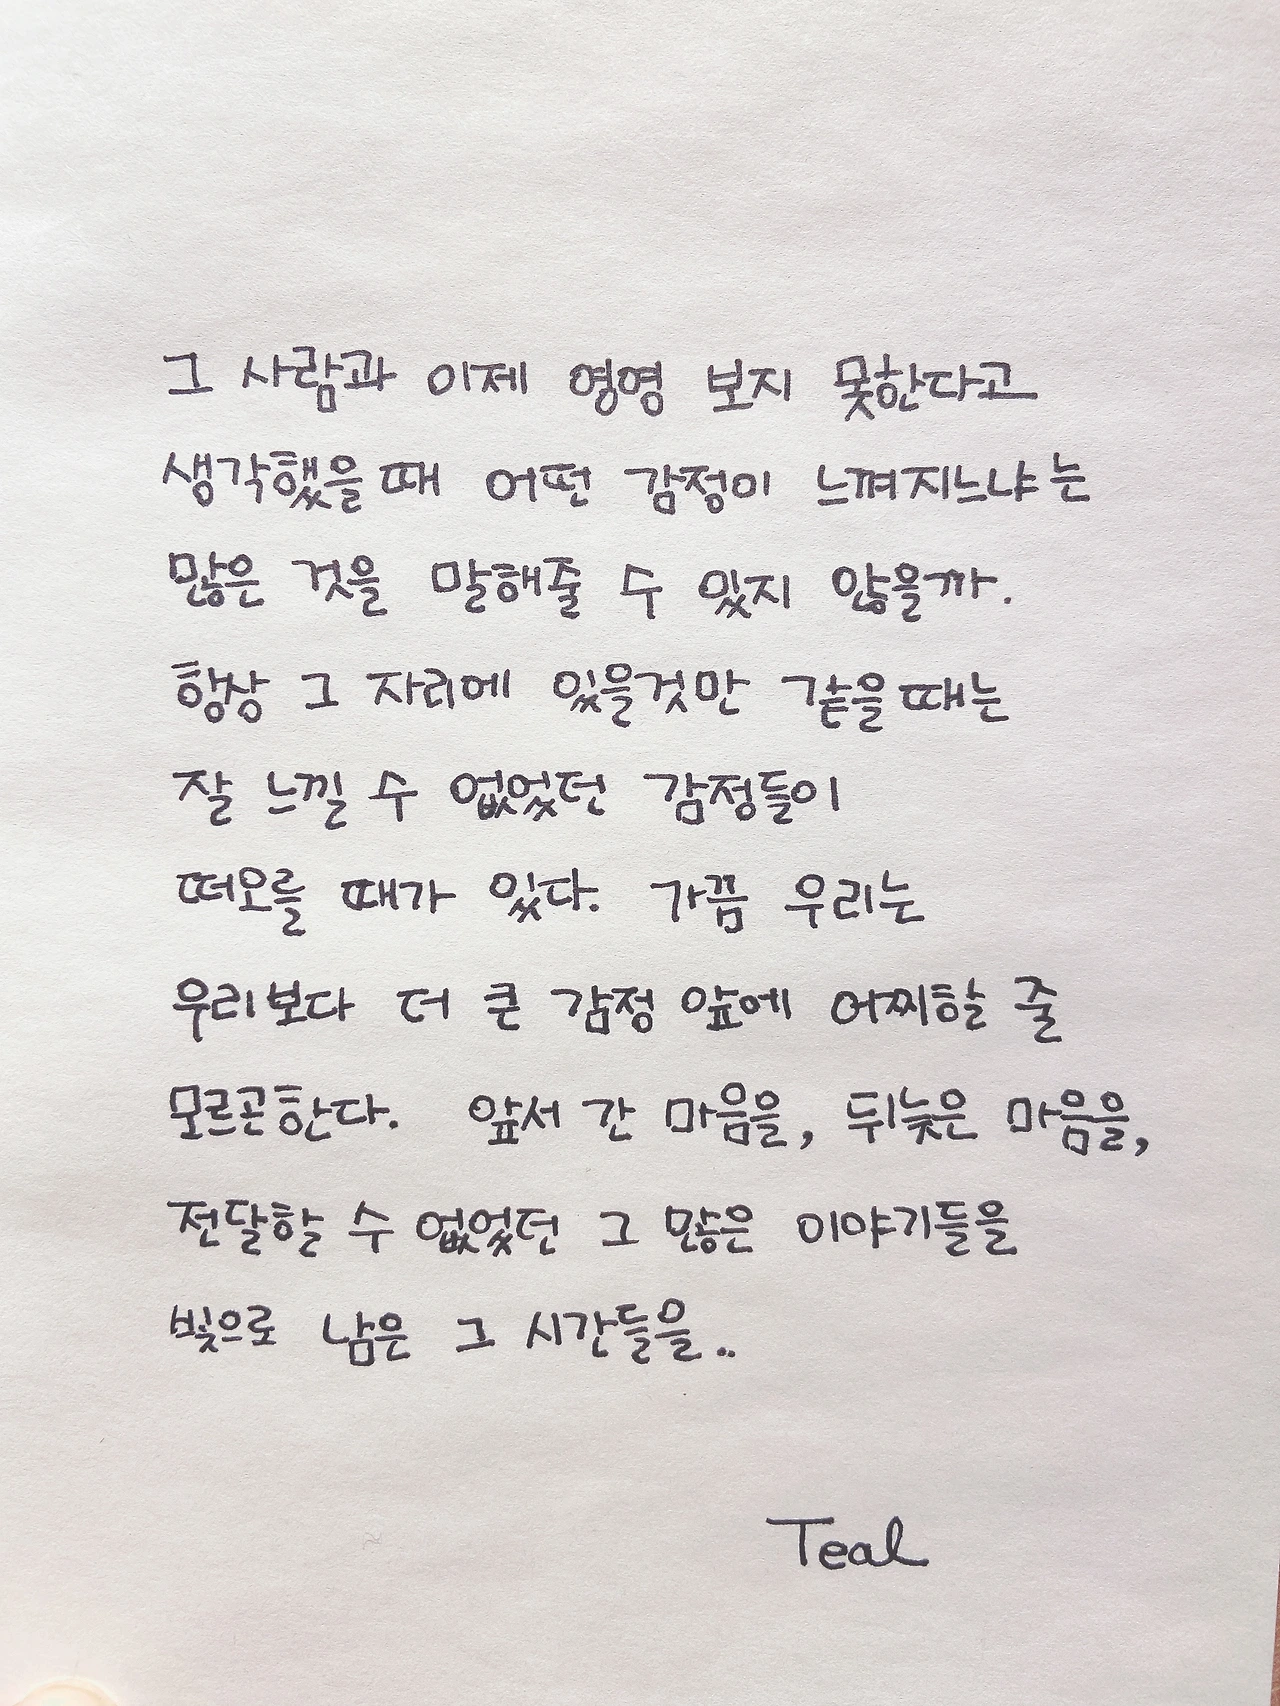 그 사람과 이제 영영 보지 못한다고
생각했을때 어떤 감정이 느껴지느냐는
많은 것을 말해줄 수 있지 않을까.
항상 그 자리에 있을것만 같을때는
잘 느낄 수 없었던 감정들이
떠오를 때가 있다. 가끔 우리는
우리보다 더 큰 감정 앞에 어찌할 줄
모르곤한다. 앞서 간 마음을, 뒤늦은 마음을,
전달할 수 없었던 그 많은 이야기들을
빛으로 남은 그 시간들을..
Teal